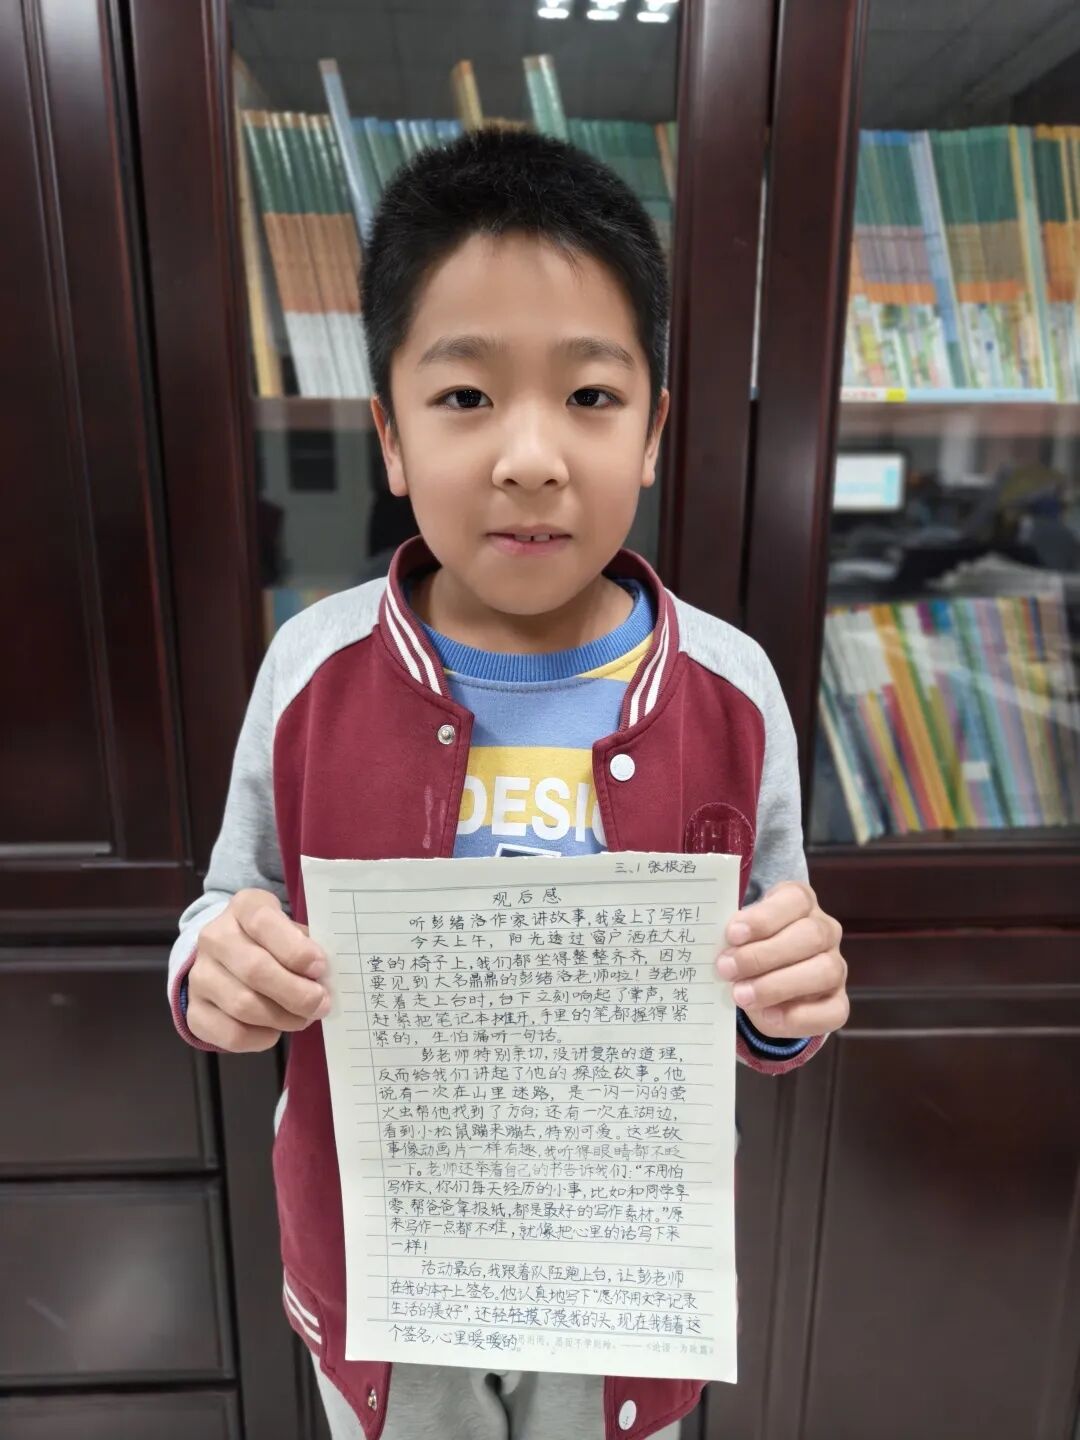 DESIG
三、1 张根滔
观后感
听彭绪洛作家讲故事,我爱上了写作!
今天上午,阳光透过窗户洒在大礼
堂的椅子上,我们都坐得整整齐齐,因为
要见到大名鼎鼎的彭绪洛老师啦!当老师
笑着走上台时,台下立刻响起了掌声,我
赶紧把笔记本摊开,手里的笔都握得紧
紧的,生怕漏听一句话。
彭老师特别亲切,没讲复杂的道理,
反而给我们讲起了他的探险故事。他
说有一次在山里迷路,是一闪一闪的萤
火虫帮他找到了方向;还有一次在湖边,
看到小松鼠蹦来蹦去,特别可爱。这些故
事像动画片一样有趣,我听得眼睛都不眨
一下。老师还举着自己的书告诉我们:“不用怕
写作文,你们每天经历的小事,比如和同学享
零、帮爸爸拿报纸,都是最好的写作素材。”原
来写作一点都不难,就像把心里的话写下来
一样!
活动最后,我跟着队伍跑上台,让彭老师
在我的本子上签名。他认真地写下“愿你用文字记录
生活的美好”,还轻轻摸了摸我的头。现在我看着这
个签名,心里暖暖的。
思而不学则殆。——《论语·为政篇》